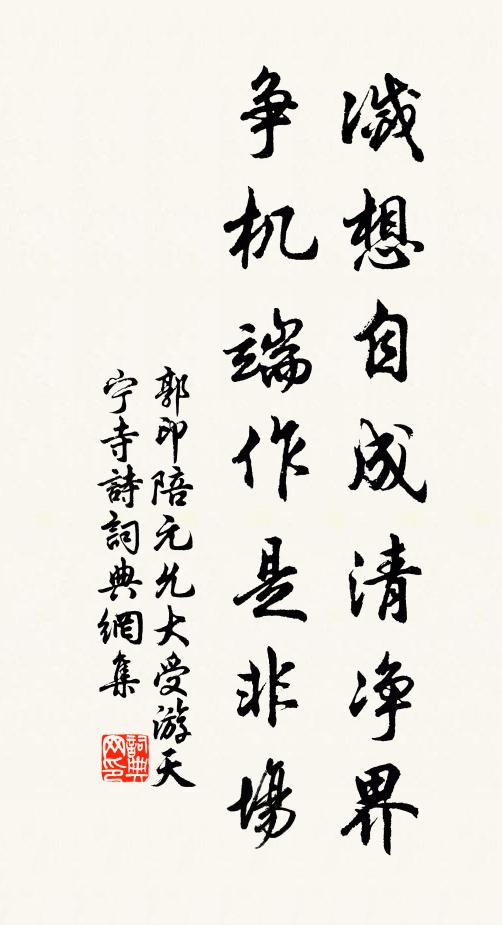 滅想自成清净界
争机端作是非場
郭印陪元允大受游天
宁寺詩詞典網集
詞典网印